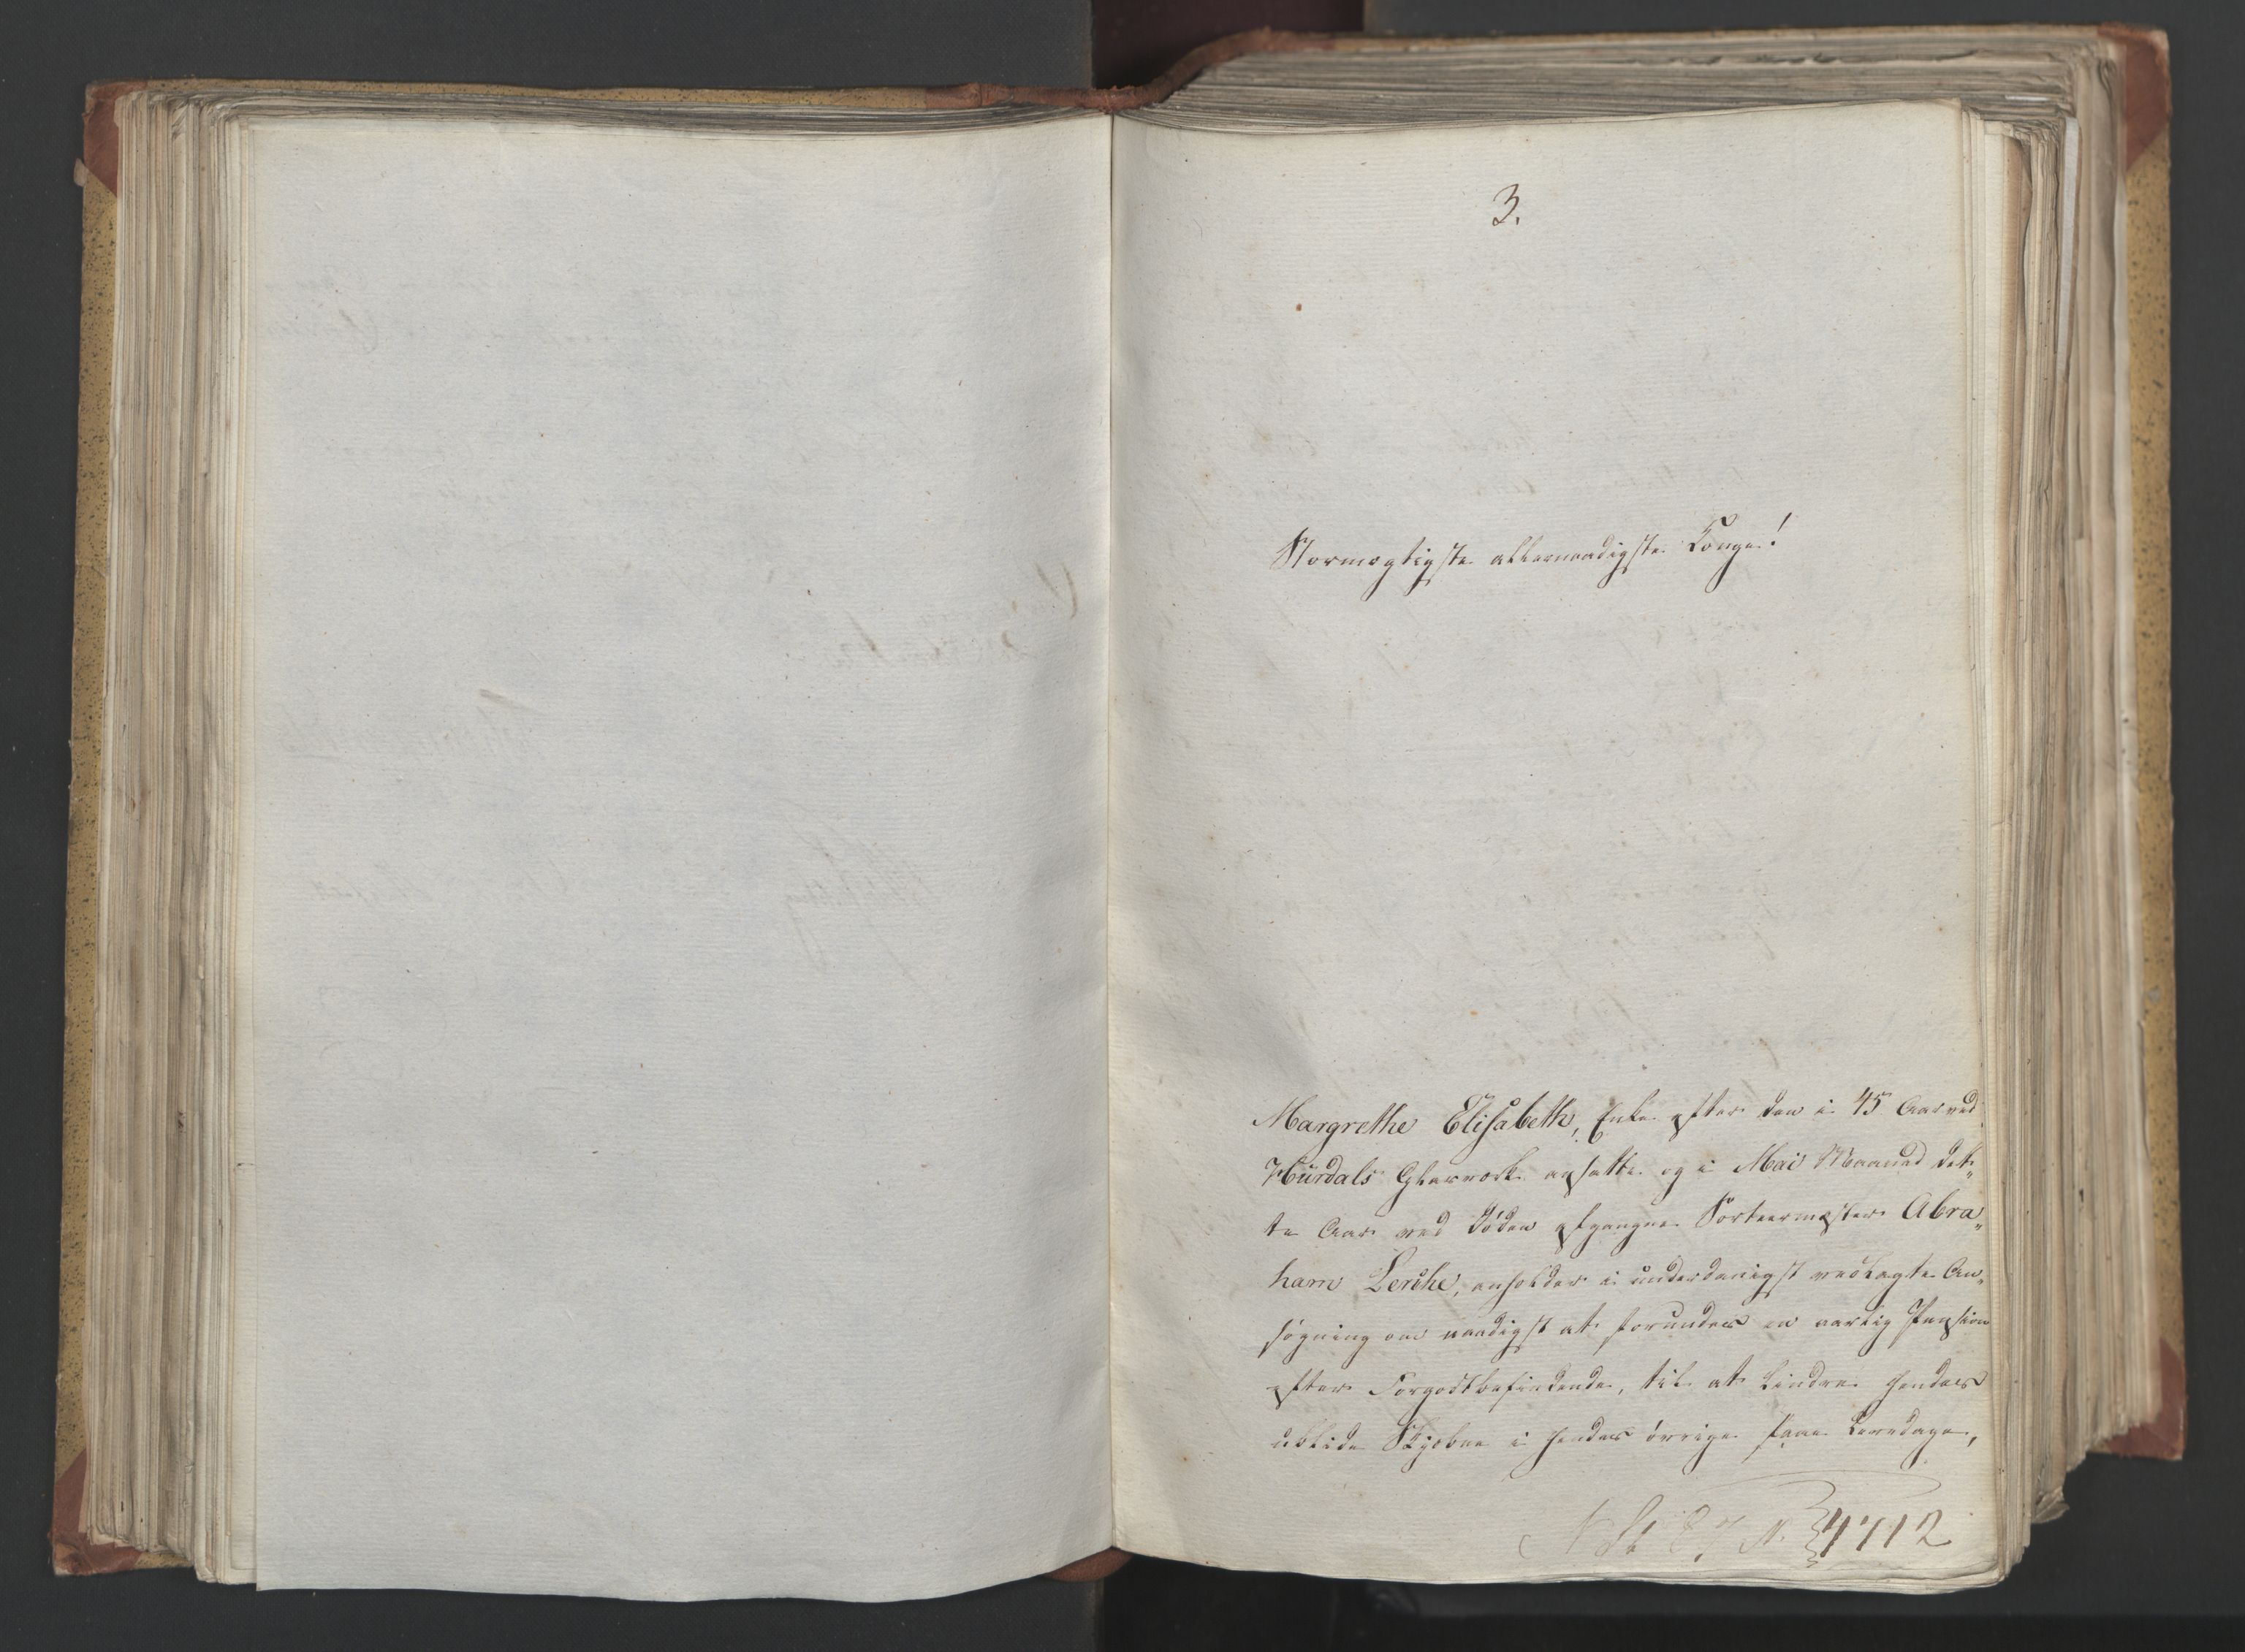 3.
Stormægtigste allernaadigste Konge!
Margrethe Elisabeth, Enke efter den i 45 Aar ved
Hurdals Glasværk ansatte og i Mai Maaned det„
te Aar ved Døden afgangne Sorteermester Abra„
ham Lerche, anholder i underdanigst vedlagte An„
søgning om naadigst at forundes en aarlig Pension
efter Forgodtbefindende, til at lindre hendes
ublide Skjebne i hendes øvrige faae Levedage,
4712